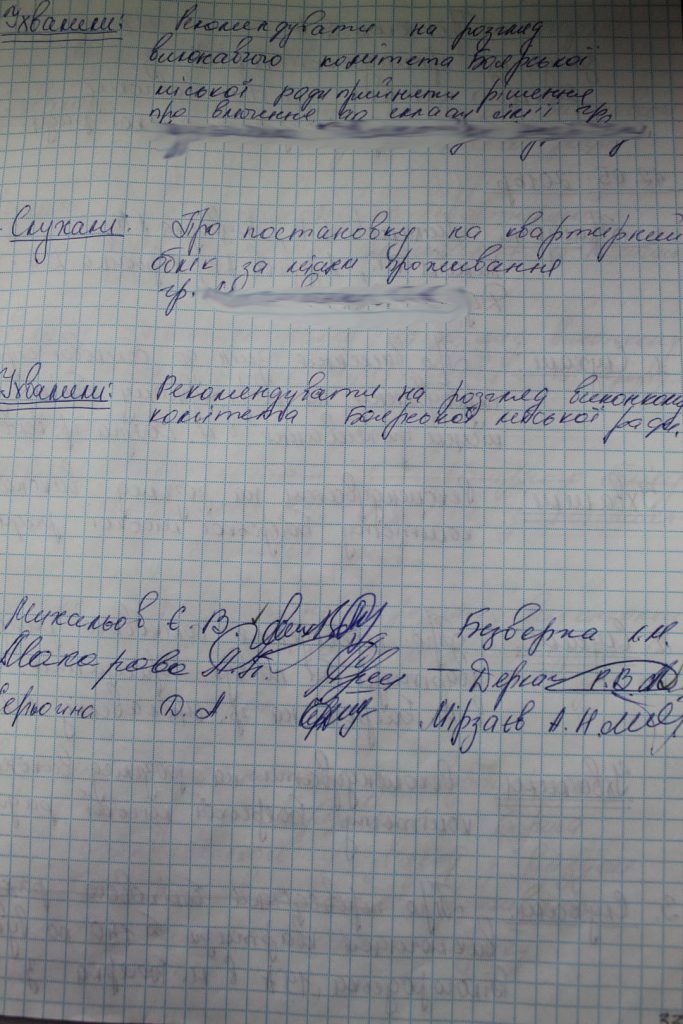 Ухвалили: Рекомендувати на розгляд
виконавчого комітета Боярської
міської ради прийняти рішення
про включення до складу сім'ї гр.
Слухали: Про постановку на квартирний
облік за місцем проживання
гр.
Ухвалили: Рекомендувати на розгляд виконкому
комітета Боярської міської ради.
Михальов Є. В. Безверха
Макарова А.П. Деркач
Серьогіна Д. А. Мірзаєв А. Н
37